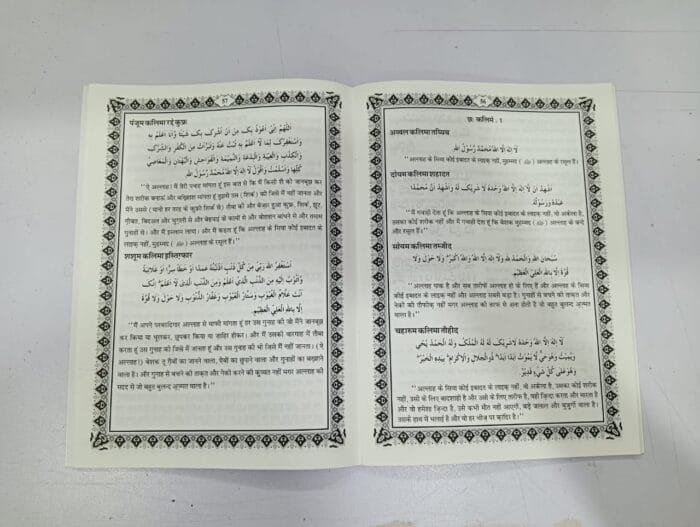 56
छः कलिमे : 1
अव्वल कलिमा तय्यिब
لَا اِلٰهَ اِلَّا اللهُ مُحَمَّدٌ رَّسُوْلُ اللهِ
"अल्लाह के सिवा कोई इबादत के लाइक़ नहीं, मुहम्मद (ﷺ) अल्लाह के रसूल हैं।"
दोयम कलिमा शहादत
اَشْهَدُ اَنْ لَّا اِلٰهَ اِلَّا اللهُ وَحْدَهٗ لَا شَرِيْكَ لَهٗ وَاَشْهَدُ اَنَّ مُحَمَّدًا
عَبْدُهٗ وَرَسُوْلُهٗ
"मैं गवाही देता हूं कि अल्लाह के सिवा कोई इबादत के लाइक़ नहीं, वो अकेला है,
उसका कोई शरीक नहीं और मैं गवाही देता हूं कि बेशक मुहम्मद (ﷺ) अल्लाह के बन्दे
और रसूल हैं।"
सोयम कलिमा तम्जीद
سُبْحَانَ اللهِ وَالْحَمْدُ لِلّٰهِ وَلَا اِلٰهَ اِلَّا اللهُ وَاللهُ اَكْبَرُ وَلَا حَوْلَ وَلَا
قُوَّةَ اِلَّا بِاللهِ الْعَلِيِّ الْعَظِيْمِ
"अल्लाह पाक है और सब तारीफ़ें अल्लाह ही के लिए हैं और अल्लाह के सिवा
कोई इबादत के लाइक़ नहीं और अल्लाह सबसे बड़ा है। गुनाहों से बचने की ताक़त और
नेकी की तौफ़ीक़ नहीं मगर अल्लाह की तरफ़ से अता होती है जो बहुत बुलन्द अ़ज़्मत
वाला है।"
चहारुम कलिमा तौहीद
لَا اِلٰهَ اِلَّا اللهُ وَحْدَهٗ لَا شَرِيْكَ لَهٗ لَهُ الْمُلْكُ وَلَهُ الْحَمْدُ يُحْيِيْ
وَيُمِيْتُ وَهُوَ حَيٌّ لَّا يَمُوْتُ اَبَدًا اَبَدًا ذُو الْجَلَالِ وَالْاِكْرَامِ بِيَدِهِ الْخَيْرُ
وَهُوَ عَلٰى كُلِّ شَيْءٍ قَدِيْرٌ
"अल्लाह के सिवा कोई इबादत के लाइक़ नहीं, वो अकेला है, उसका कोई शरीक
नहीं, उसी के लिए बादशाही है और उसी के लिए तारीफ़, वही ज़िन्दा करता और मारता है
और वो हमेशा ज़िन्दा है, उसे कभी मौत नहीं आएगी, बड़े जलाल और बुज़ुर्गी वाला है।
उसके हाथ में भलाई है और वो हर चीज़ पर क़ादिर है।"
57
पंजुम कलिमा रद्दे कुफ़्र
اَللّٰهُمَّ اِنِّيْ اَعُوْذُ بِكَ مِنْ اَنْ اُشْرِكَ بِكَ شَيْئًا وَّاَنَا اَعْلَمُ بِهٖ
وَاَسْتَغْفِرُكَ لِمَا لَا اَعْلَمُ بِهٖ تُبْتُ عَنْهُ وَتَبَرَّأْتُ مِنَ الْكُفْرِ وَالشِّرْكِ
وَالْكِذْبِ وَالْغِيْبَةِ وَالْبِدْعَةِ وَالنَّمِيْمَةِ وَالْفَوَاحِشِ وَالْبُهْتَانِ وَالْمَعَاصِيْ
كُلِّهَا وَاَسْلَمْتُ وَاَقُوْلُ لَا اِلٰهَ اِلَّا اللهُ مُحَمَّدٌ رَّسُوْلُ اللهِ
"ऐ अल्लाह! मैं तेरी पनाह मांगता हूं इस बात से कि मैं किसी शै को जानबूझ कर
तेरा शरीक बनाऊं और बख़्शिश मांगता हूं तुझसे उस (शिर्क) की जिसे मैं नहीं जानता और
मैंने उससे (यानी हर तरह के कुफ़्रो शिर्क से) तौबा की और बेज़ार हुआ कुफ़्र, शिर्क, झूट,
ग़ीबत, बिदअ़त और चुग़ली से और बेहयाई के कामों से और बोहतान बांधने से और तमाम
गुनाहों से। और मैं इस्लाम लाया। और मैं कहता हूं कि अल्लाह के सिवा कोई इबादत के
लाइक़ नहीं, मुहम्मद (ﷺ) अल्लाह के रसूल हैं।"
शशुम कलिमा इस्तिग़्फ़ार
اَسْتَغْفِرُ اللهَ رَبِّيْ مِنْ كُلِّ ذَنْبٍ اَذْنَبْتُهٗ عَمَدًا اَوْ خَطَأً سِرًّا اَوْ عَلَانِيَةً
وَّاَتُوْبُ اِلَيْهِ مِنَ الذَّنْبِ الَّذِيْ اَعْلَمُ وَمِنَ الذَّنْبِ الَّذِيْ لَا اَعْلَمُ اِنَّكَ
اَنْتَ عَلَّامُ الْغُيُوْبِ وَسَتَّارُ الْعُيُوْبِ وَغَفَّارُ الذُّنُوْبِ وَلَا حَوْلَ وَلَا قُوَّةَ
اِلَّا بِاللهِ الْعَلِيِّ الْعَظِيْمِ
"मैं अपने परवरदिगार अल्लाह से माफ़ी मांगता हूं हर उस गुनाह की जो मैंने जानबूझ
कर किया या भूलकर, छुपकर किया या ज़ाहिर होकर। और मैं उसकी बारगाह में तौबा
करता हूं उस गुनाह की जिसे मैं जानता हूं और उस गुनाह की भी जिसे मैं नहीं जानता। (ऐ
अल्लाह!) बेशक तू ग़ैबों का जानने वाला, ऐबों का छुपाने वाला और गुनाहों का बख़्शने
वाला है। और गुनाह से बचने की ताक़त और नेकी करने की क़ुव्वत नहीं मगर अल्लाह की
मदद से जो बहुत बुलन्द अ़ज़्मत वाला है।"